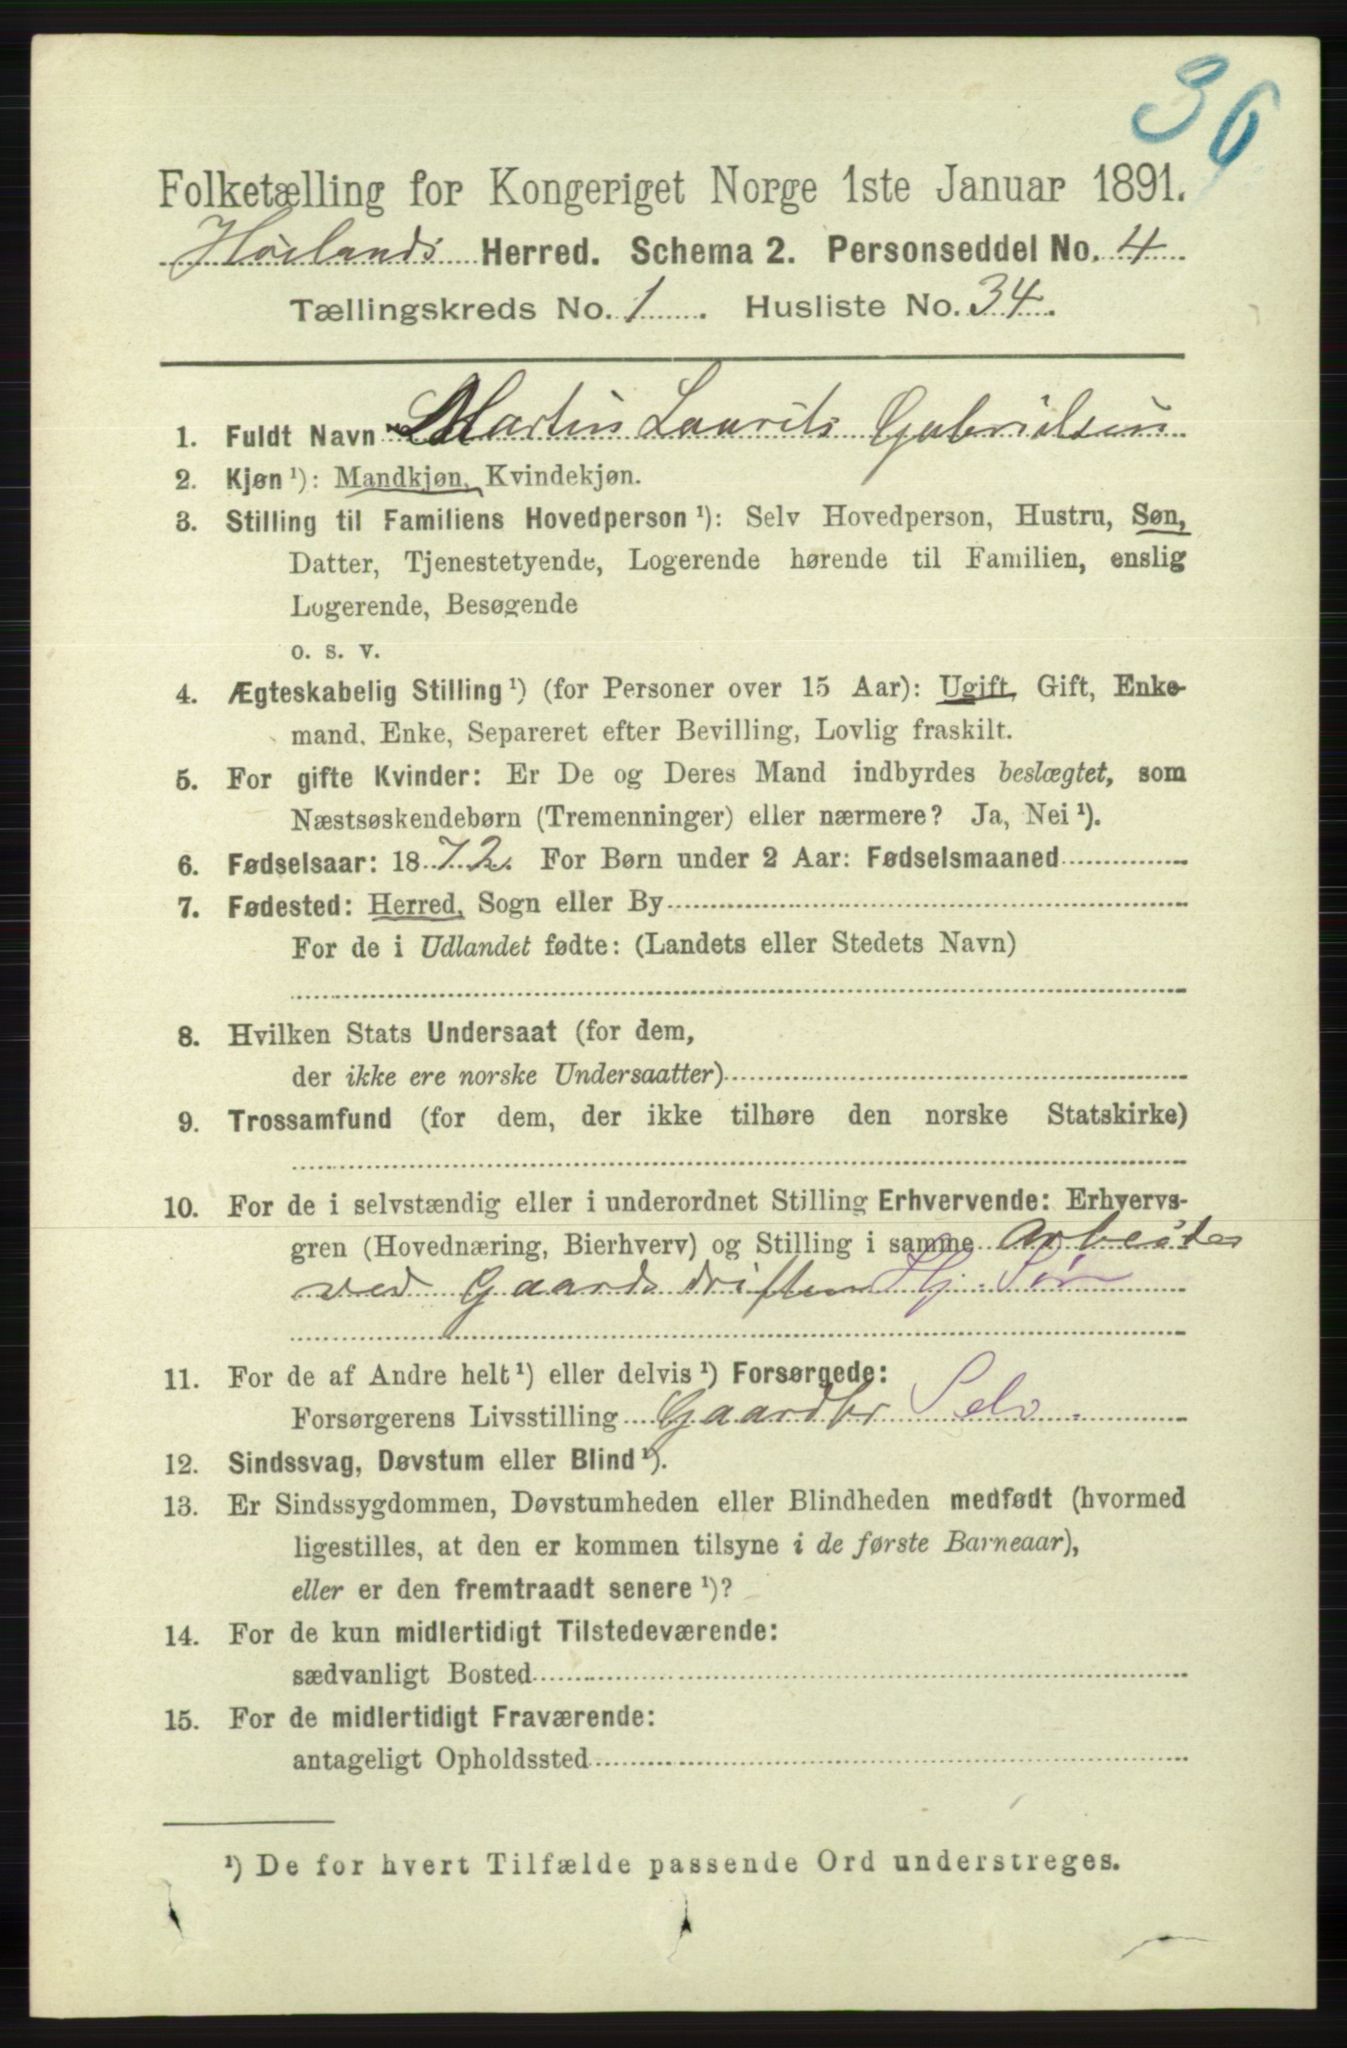 36
Folketælling for Kongeriget Norge 1ste Januar 1891.
Høilands Herred. Schema 2. Personseddel No. 4
Tællingskreds No. 1. Husliste No. 34.
1. Fuldt Navn Martin Laurits Gabrielsen
2. Kjøn ¹): Mandkjøn, Kvindekjøn.
3. Stilling til Familiens Hovedperson ¹): Selv Hovedperson, Hustru, Søn,
Datter, Tjenestetyende, Logerende hørende til Familien, enslig
Logerende, Besøgende
o. s. v.
4. Ægteskabelig Stilling ¹) (for Personer over 15 Aar): Ugift, Gift, Enke-
mand, Enke, Separeret efter Bevilling, Lovlig fraskilt.
5. For gifte Kvinder: Er De og Deres Mand indbyrdes beslægtet, som
Næstsøskendebørn (Tremenninger) eller nærmere? Ja, Nei ¹).
6. Fødselsaar: 1872. For Børn under 2 Aar: Fødselsmaaned
7. Fødested: Herred, Sogn eller By
For de i Udlandet fødte: (Landets eller Stedets Navn)
8. Hvilken Stats Undersaat (for dem,
der ikke ere norske Undersaatter)
9. Trossamfund (for dem, der ikke tilhøre den norske Statskirke)
10. For de i selvstændig eller i underordnet Stilling Erhvervende: Erhvervs-
gren (Hovednæring, Bierhverv) og Stilling i samme Arbeider
ved Gaardsdriften Hj. Søn
11. For de af Andre helt ¹) eller delvis ¹) Forsørgede:
Forsørgerens Livsstilling Gaardbr Selv.
12. Sindssvag, Døvstum eller Blind ¹).
13. Er Sindssygdommen, Døvstumheden eller Blindheden medfødt (hvormed
ligestilles, at den er kommen tilsyne i de første Barneaar),
eller er den fremtraadt senere ¹)?
14. For de kun midlertidigt Tilstedeværende:
sædvanligt Bosted
15. For de midlertidigt Fraværende:
antageligt Opholdssted
¹) De for hvert Tilfælde passende Ord understreges.